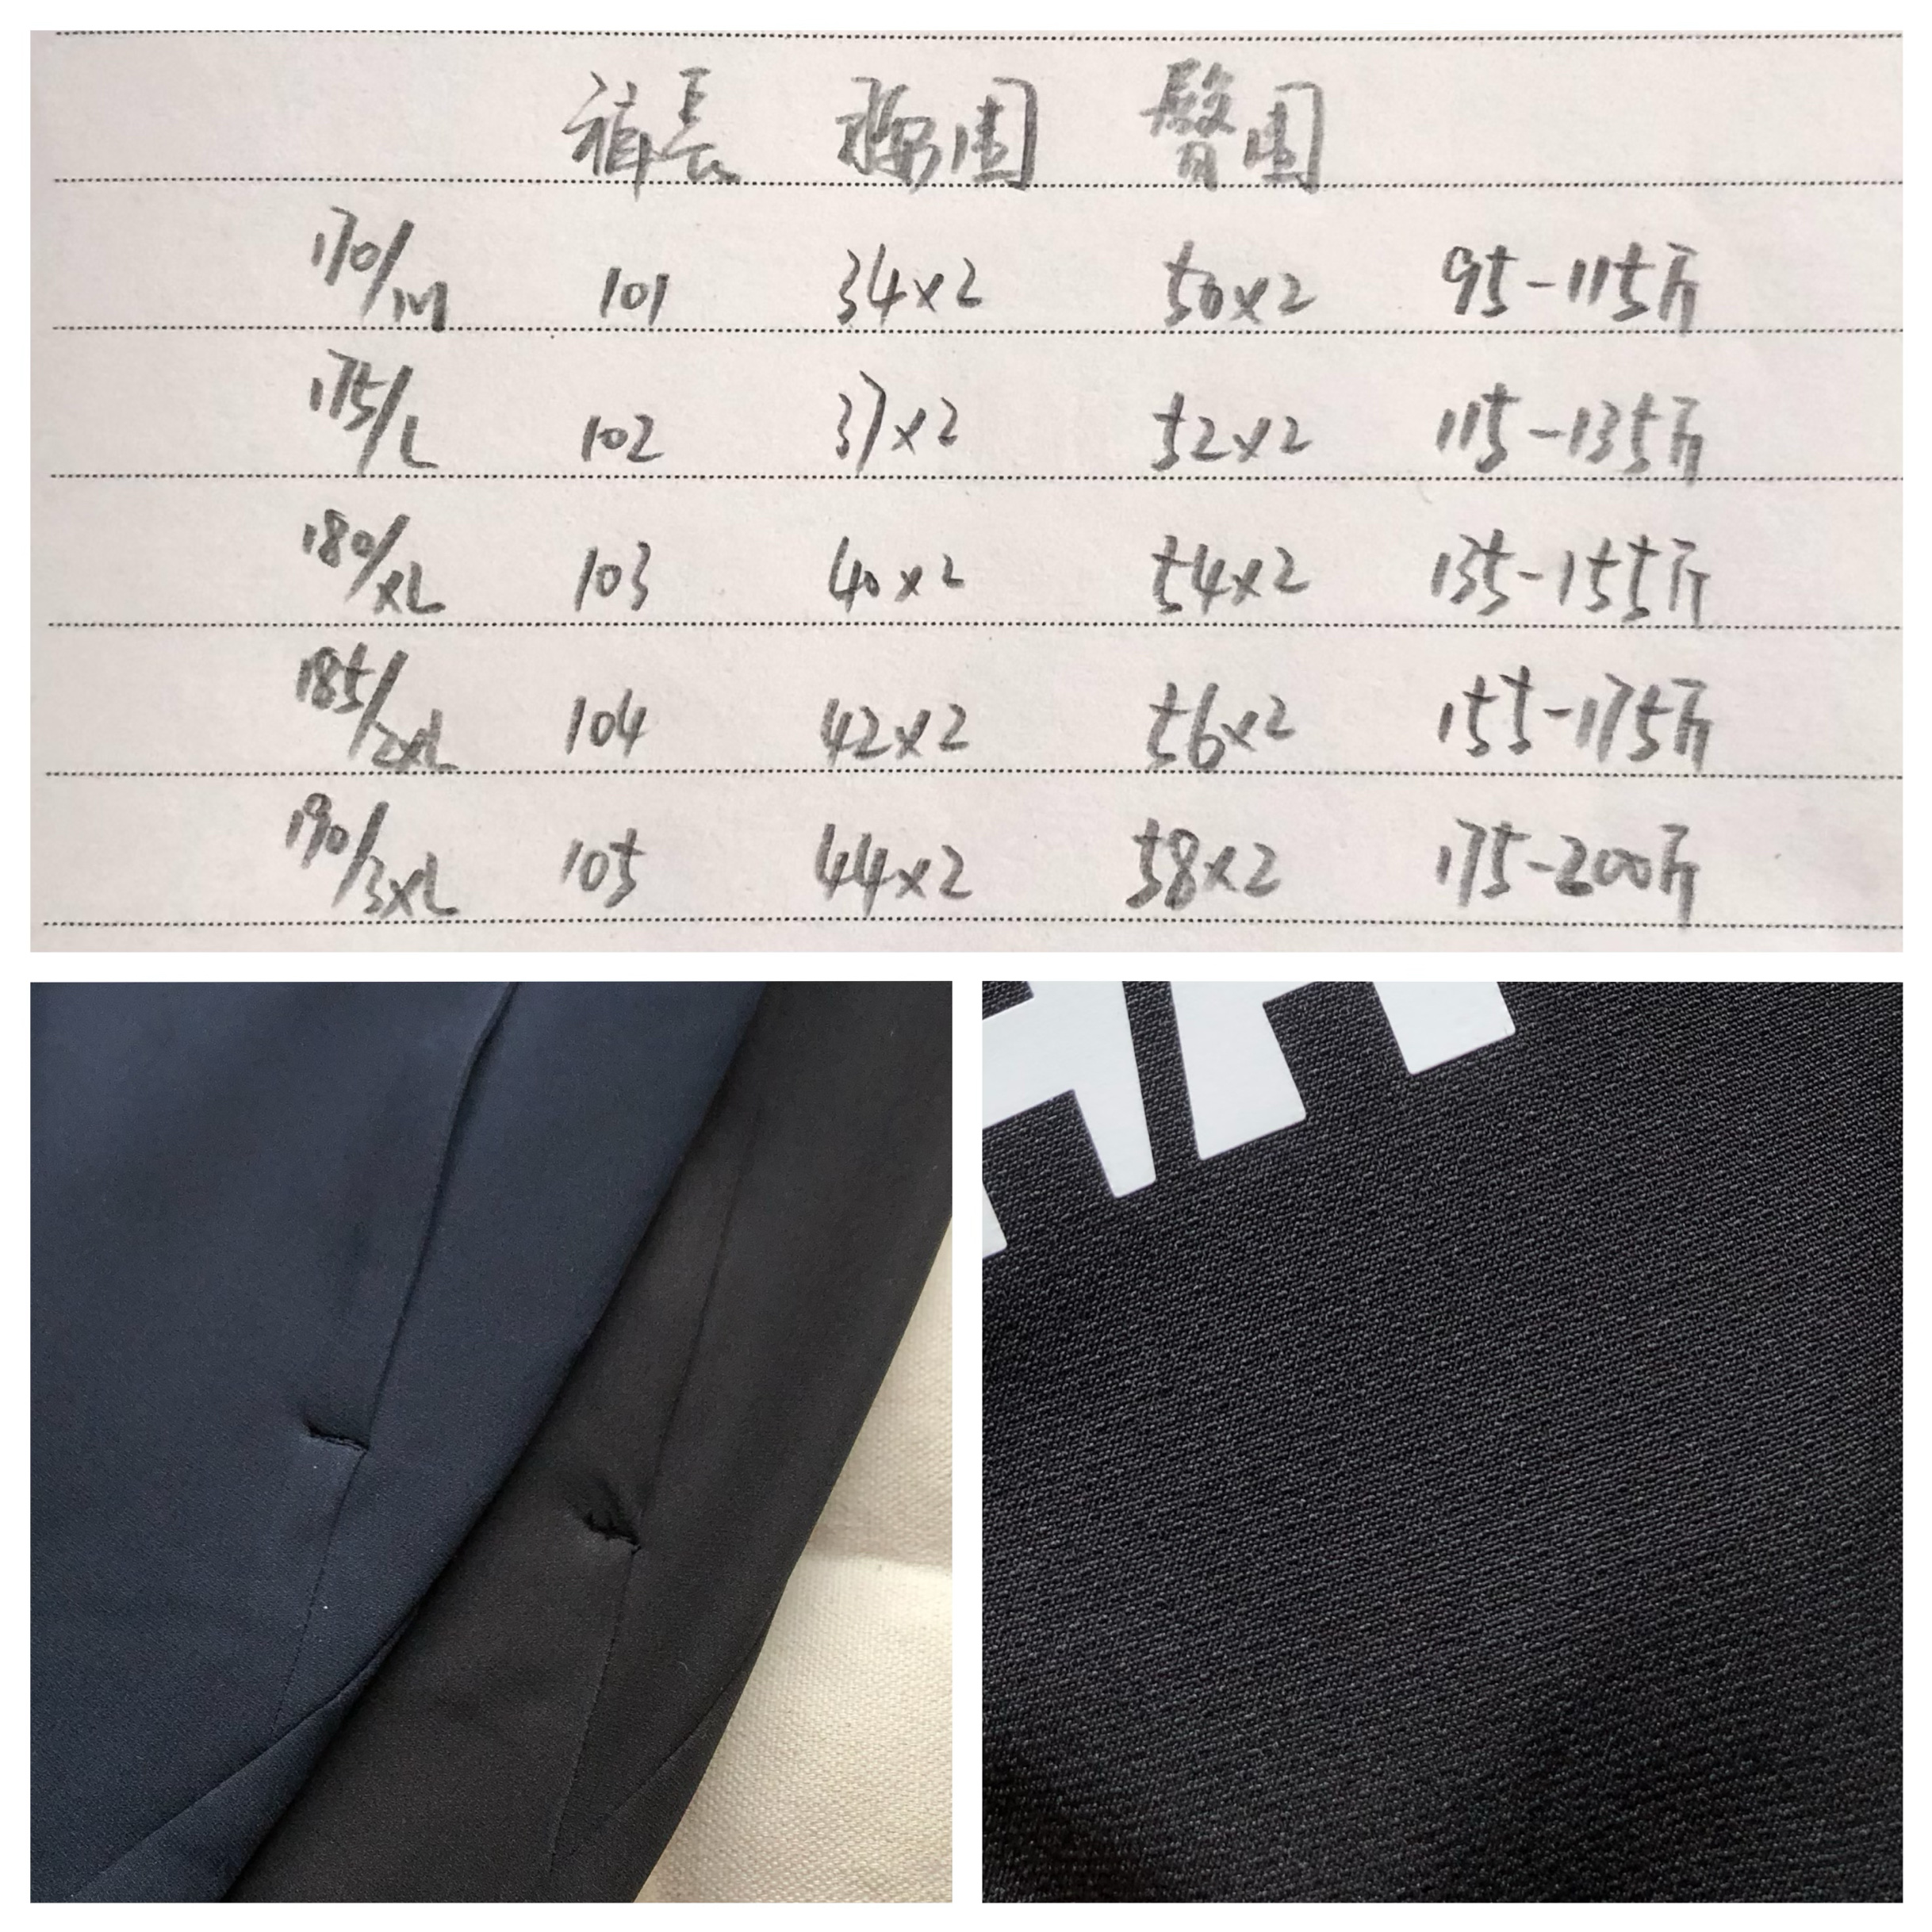 裤長 腰围 臀围
170/M 101 34×2 50×2 95-115斤
175/L 102 37×2 52×2 115-135斤
180/XL 103 40×2 54×2 135-155斤
185/2XL 104 42×2 56×2 155-175斤
190/3XL 105 44×2 58×2 175-200斤